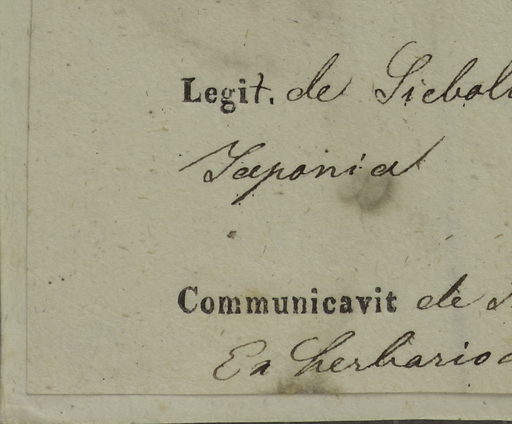 Legit. de Siebol
Japonia
Communicavit de
Ex herbario